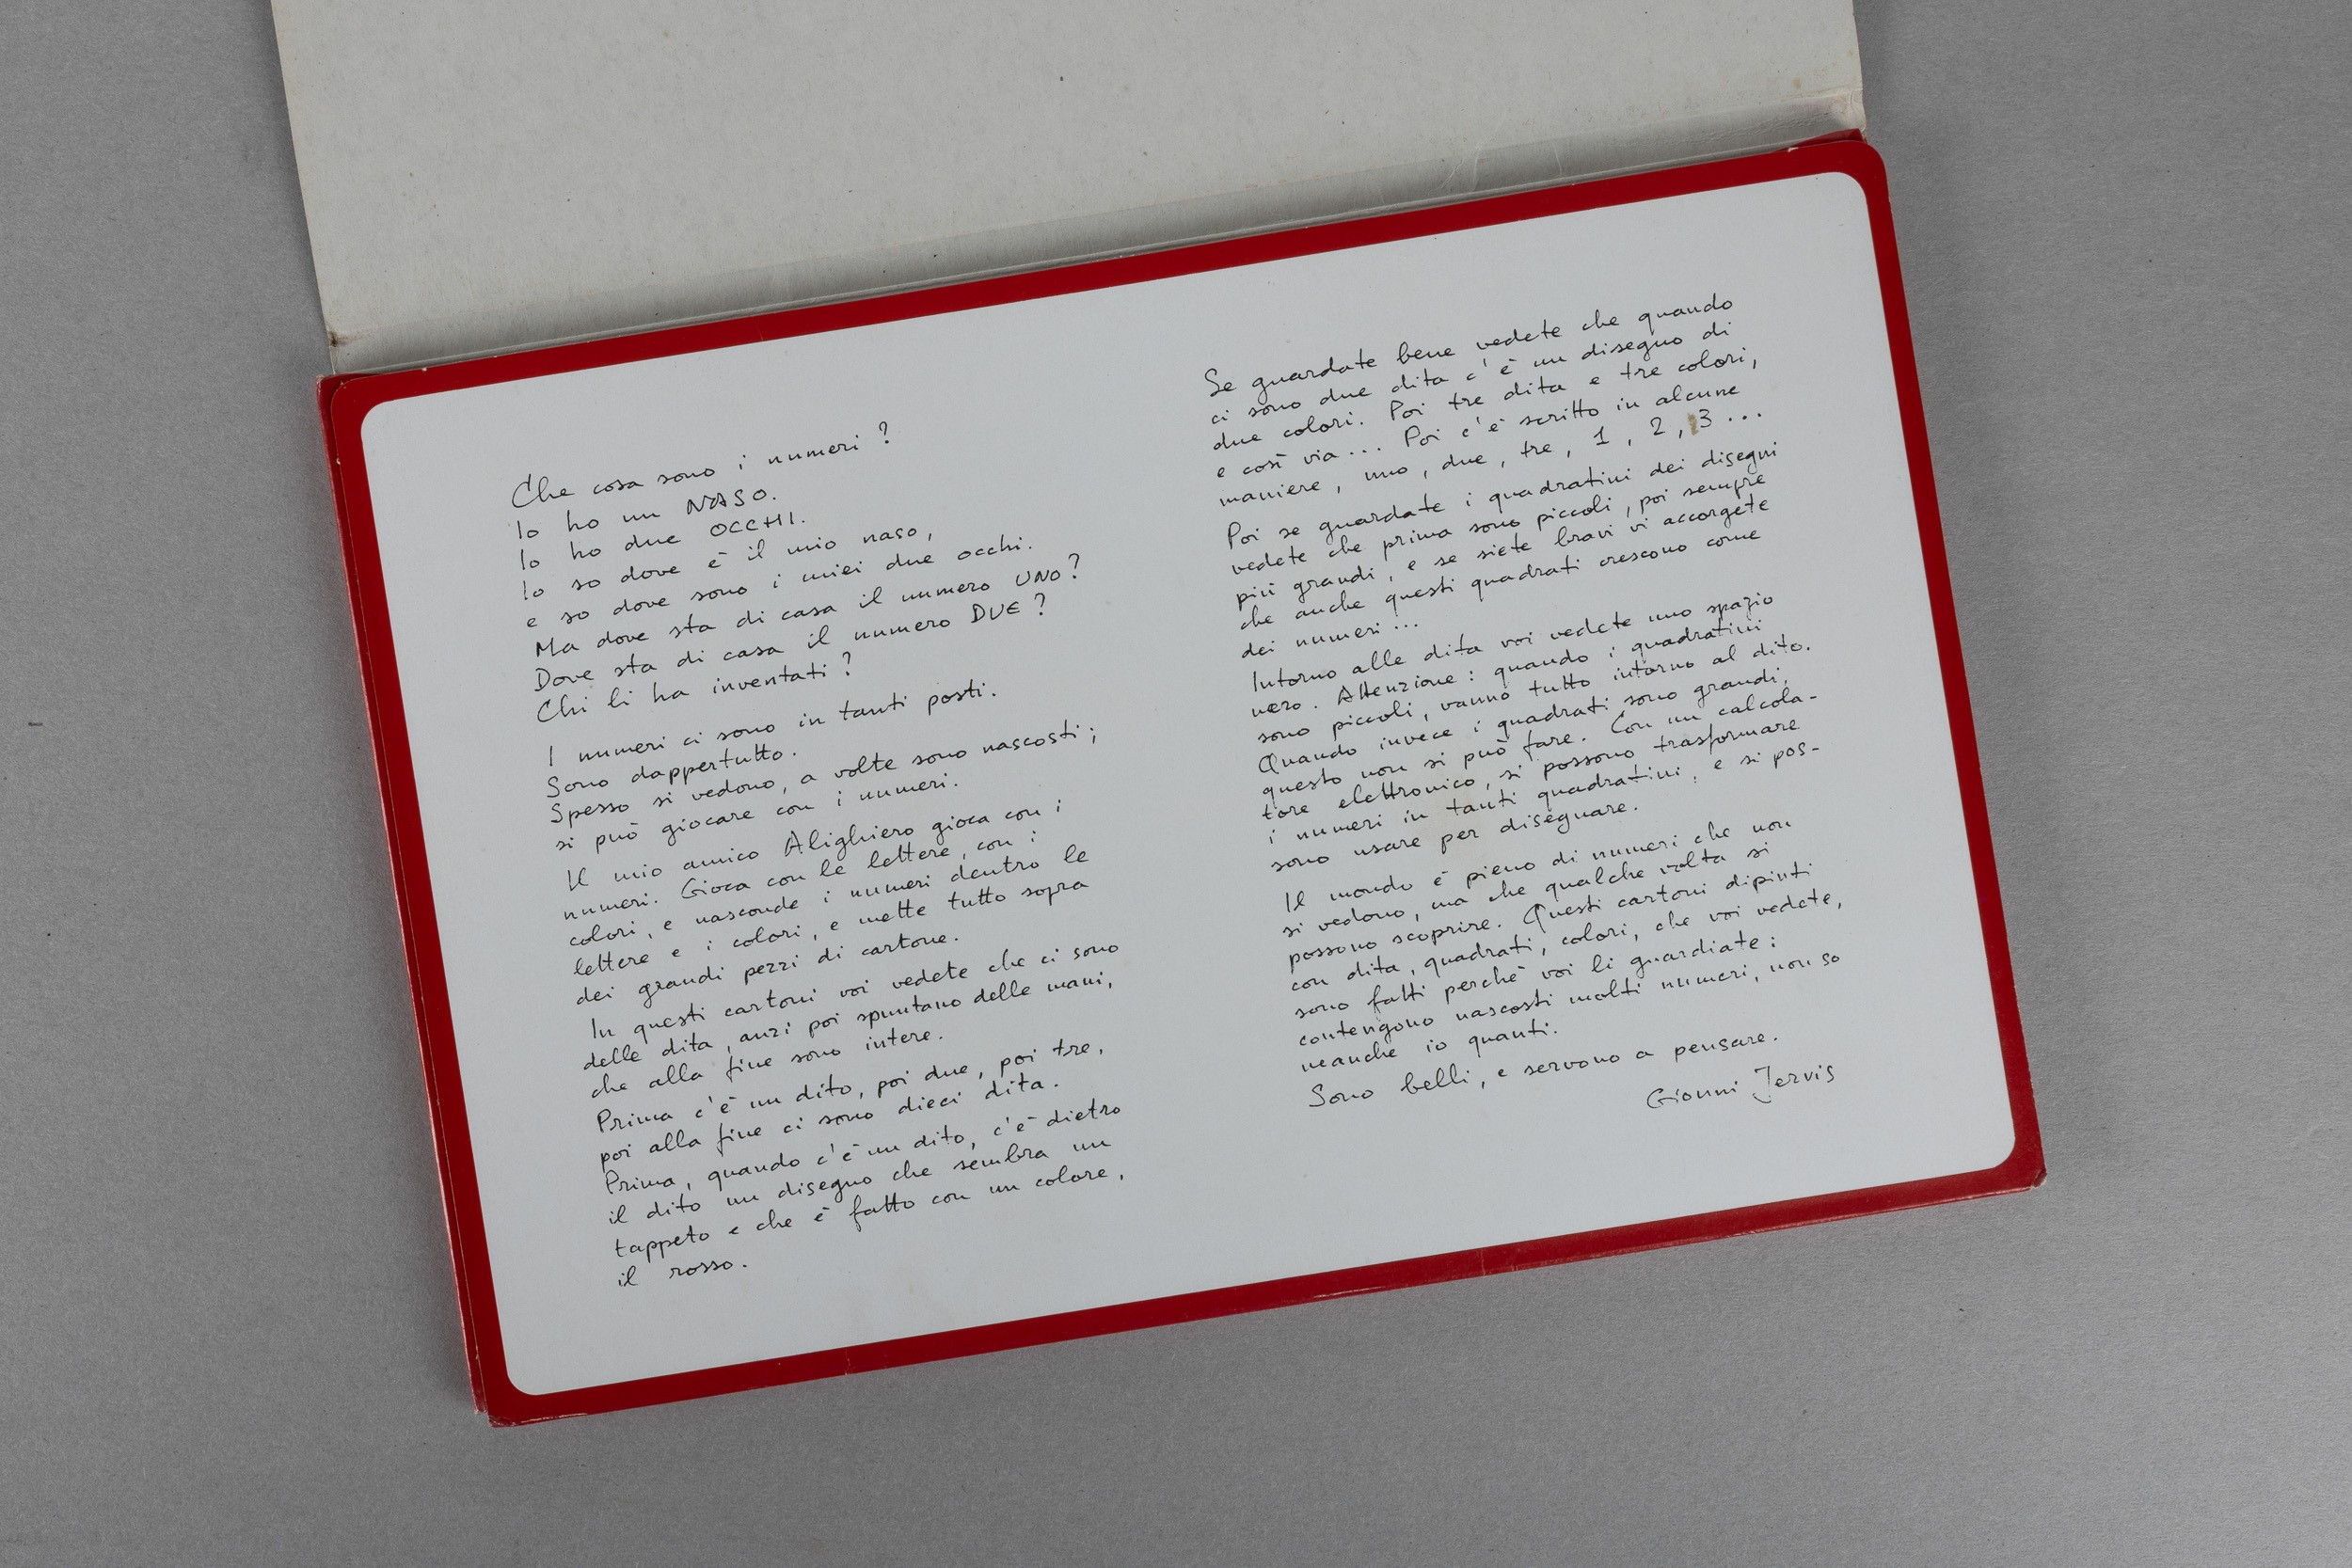 Che cosa sono i numeri?
Io ho un NASO.
Io ho due OCCHI.
Io so dove è il mio naso,
e so dove sono i miei due occhi.
Ma dove sta di casa il numero UNO?
Dove sta di casa il numero DUE?
Chi li ha inventati?
I numeri ci sono in tanti posti.
Sono dappertutto.
Spesso si vedono, a volte sono nascosti;
si può giocare con i numeri.
Il mio amico Alighiero gioca con i
numeri. Gioca con le lettere, con i
colori, e nasconde i numeri dentro le
lettere e i colori, e mette tutto sopra
dei grandi pezzi di cartone.
In questi cartoni voi vedete che ci sono
delle dita, anzi poi spuntano delle mani,
che alla fine sono intere.
Prima c'è un dito, poi due, poi tre,
poi alla fine ci sono dieci dita.
Prima, quando c'è un dito, c'è dietro
il dito un disegno che sembra un
tappeto e che è fatto con un colore,
il rosso.
Se guardate bene vedete che quando
ci sono due dita c'è un disegno di
due colori. Poi tre dita e tre colori,
e così via... Poi c'è scritto in alcune
maniere, uno, due, tre, 1, 2, 3...
Poi se guardate i quadratini dei disegni
vedete che prima sono piccoli, poi sempre
più grandi, e se siete bravi vi accorgete
che anche questi quadrati crescono come
dei numeri...
Intorno alle dita voi vedete uno spazio
nero. Attenzione: quando i quadratini
sono piccoli, vanno tutto intorno al dito.
Quando invece i quadrati sono grandi,
questo non si può fare. Con un calcola-
tore elettronico, si possono trasformare
i numeri in tanti quadratini, e si pos-
sono usare per disegnare.
Il mondo è pieno di numeri che non
si vedono, ma che qualche volta si
possono scoprire. Questi cartoni dipinti
con dita, quadrati, colori, che voi vedete,
sono fatti perché voi li guardiate:
contengono nascosti molti numeri, non so
neanche io quanti.
Sono belli, e servono a pensare.
Gionni Jervis